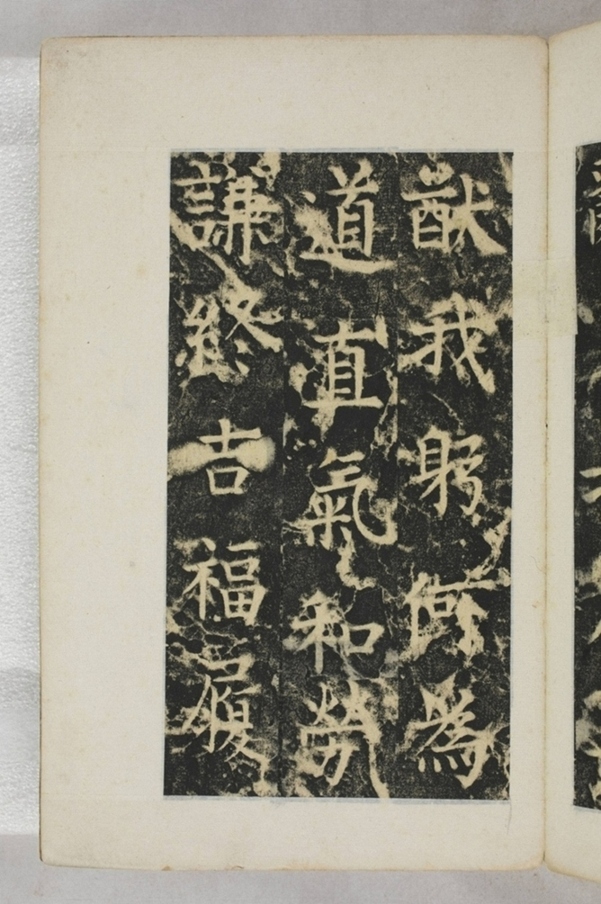 猷我躬何為
道直氣和勞
謙終吉福履